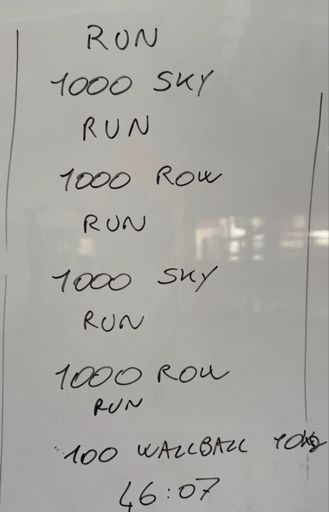 RUN
1000 SKY
RUN
1000 ROW
RUN
1000 SKY
RUN
1000 ROW
RUN
100 WALLBALL 10kg
46:07